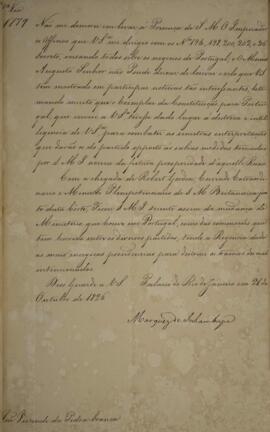 1879
Não me demorei em levar á Presença de S. M. O Imperador
os Officios que V. Sª me dirigio com os Nos 196, 198, 200, 202, e
Secreto, versando todos sobre os negocios de Portugal, e o Mesmo
Augusto Senhor não Pôde deixar de louvar o zelo que V. Sª
tem mostrado em participar noticias tão interessantes, esti
mando muito que o Exemplar da Constituição para Portugal,
que enviei a V. Sª tivesse dado lugar a destreza e intel-
ligencia de V. Sª para combater as sinistras interpretações
que davão os do partido opposto ás sabias medidas tomadas
por S. M. I. acerca da futura prosperidade d'aquelle Reino.
Com a chegada de Robert Gordon, Enviado Extraordi-
nario e Ministro Plenipotenciario de S. M. Britannica jun-
to desta Corte, Ficou S. M. I. sciente assim da mudança do
Ministerio que houve em Portugal, como das commoções que
tem havido entre os diversos partidos, tendo a Regencia dado
as mais energicas providencias para destruir as tramas dos mal
intencionados.
Deos Guarde a V. S. Palacio do Rio de Janeiro em 21 de
Outubro de 1826
Marquez de Inhambupe
Senr. Visconde da Pedra branca